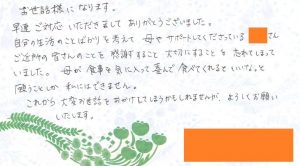 お世話様になります。
早速ご対応いただきまして ありがとうございました。
自分の生活のことばかりを考えて 母や サポートしてくださっている さん
ご近所の皆さんのことを 感謝すること 大切にすることを 忘れてしまって
いました。 母が 食事を気に入って 喜んで 食べてくれるといいな。と
願うことしか 私にはできません。
これから 大変お世話を おかけしてしまうかもしれませんが、よろしくお願い
いたします。